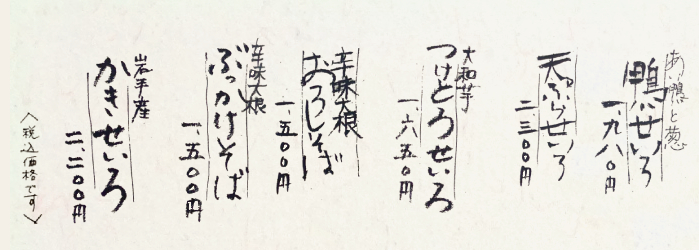 あい鴨と葱
鴨せいろ
一、九八〇円
天ぷらせいろ
二、三〇〇円
大和芋
つけとろせいろ
一、六五〇円
辛味大根
おろしそば
一、五〇〇円
辛味大根
ぶっかけそば
一、五〇〇円
岩手産
かきせいろ
二、二〇〇円
〈税込価格です〉